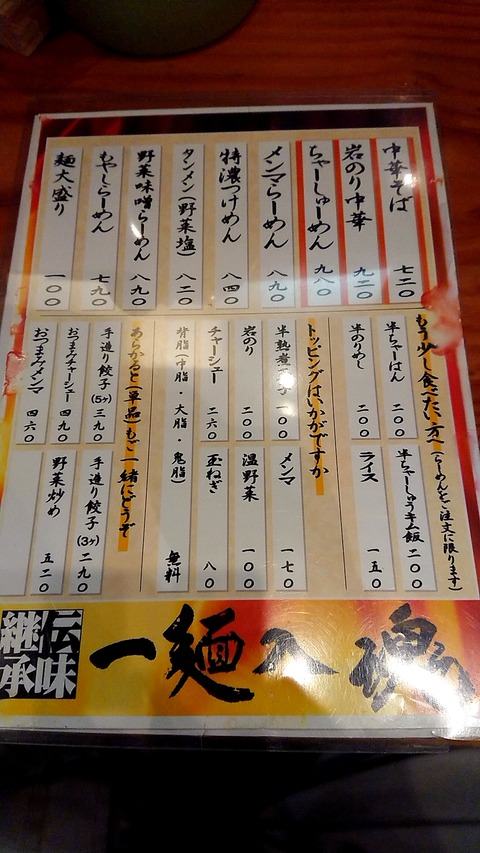 中華そば 七二〇
岩のり中華 九二〇
ちゃーしゅーめん 九八〇
メンマらーめん 八九〇
特濃つけめん 八四〇
タンメン(野菜塩) 八二〇
野菜味噌らーめん 八九〇
もやしらーめん 七九〇
麺大盛り 一〇〇
もう少し食べたい方へ(らーめんをご注文に限ります)
半ちゃーはん 二〇〇
半ちゃーしゅうキム飯 二〇〇
半のりめし 二〇〇
ライス 一五〇
トッピングはいかがですか
半熟煮玉子 一〇〇
メンマ 一七〇
岩のり 二〇〇
温野菜 一〇〇
チャーシュー 二六〇
玉ねぎ 八〇
背脂(中脂・大脂・鬼脂) 無料
あらかると(単品)もご一緒にどうぞ
手造り餃子(5ヶ) 三九〇
手造り餃子(3ヶ) 二九〇
おつまみチャーシュー 四九〇
野菜炒め 五二〇
おつまみメンマ 四六〇
伝味
継承
一麺入魂